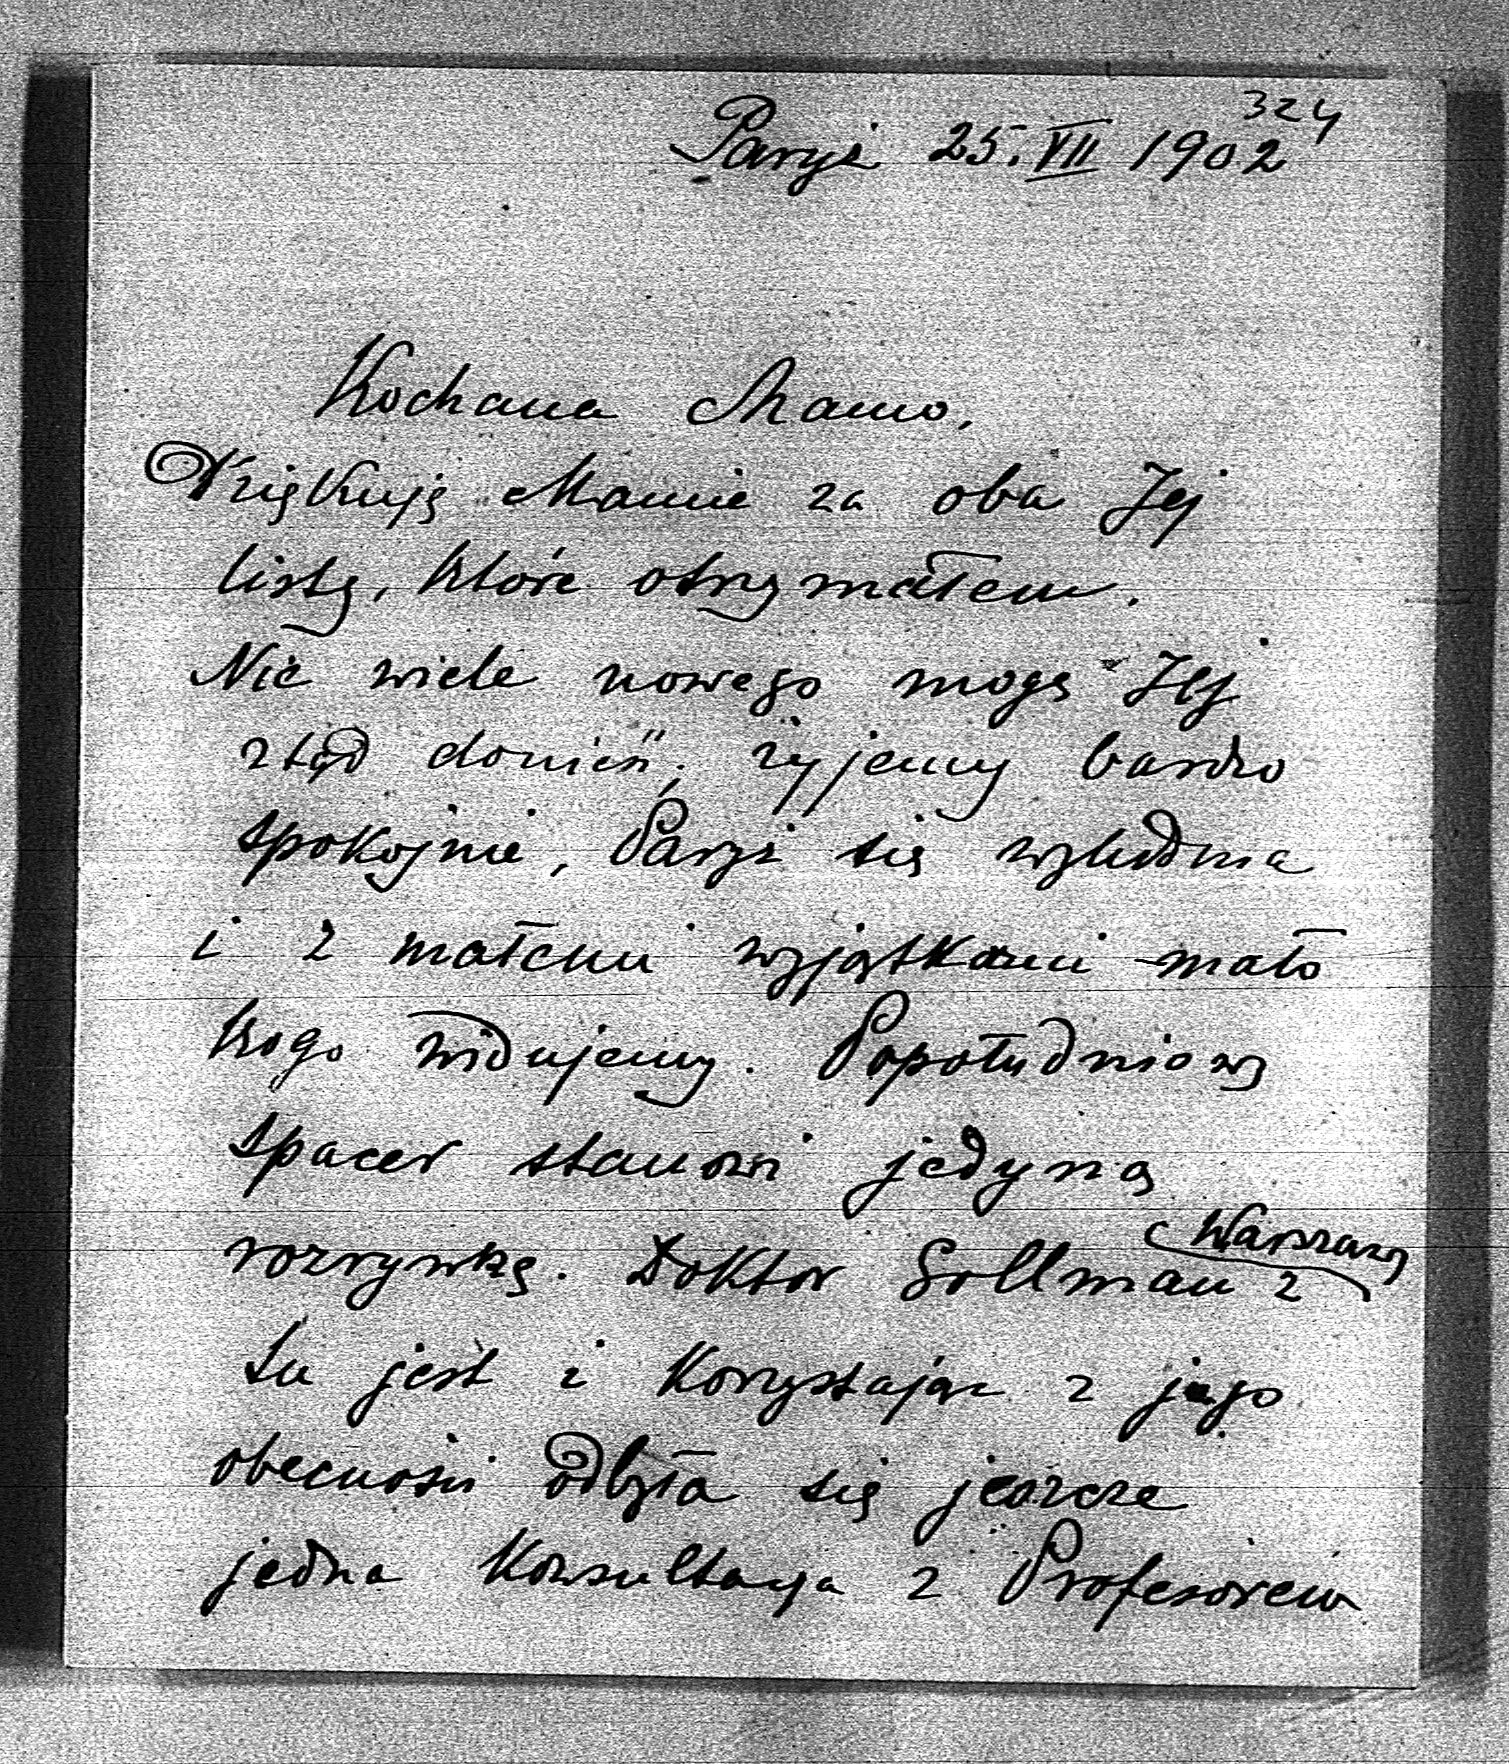 324
Paryż 25. VII 1902
Kochana Mamo,
Dziękuję Mamie za oba Jej
listy, które otrzymałem.
Nie wiele nowego mogę Jej
ztąd donieść; żyjemy bardzo
spokojnie, Paryż się wyludnia
i z małemi wyjątkami mało
kogo widujemy. Popołudniowy
spacer stanowi jedyną
rozrywkę. Doktor Sollman z Warszawy
tu jest i korzystając z jego
obecności odbyła się jeszcze
jedna konsultacya z Profesorem